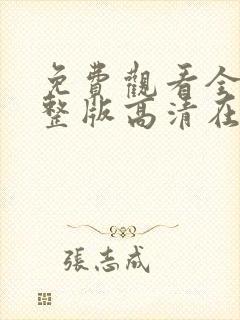 免費觀看全
整版高清在
張志成